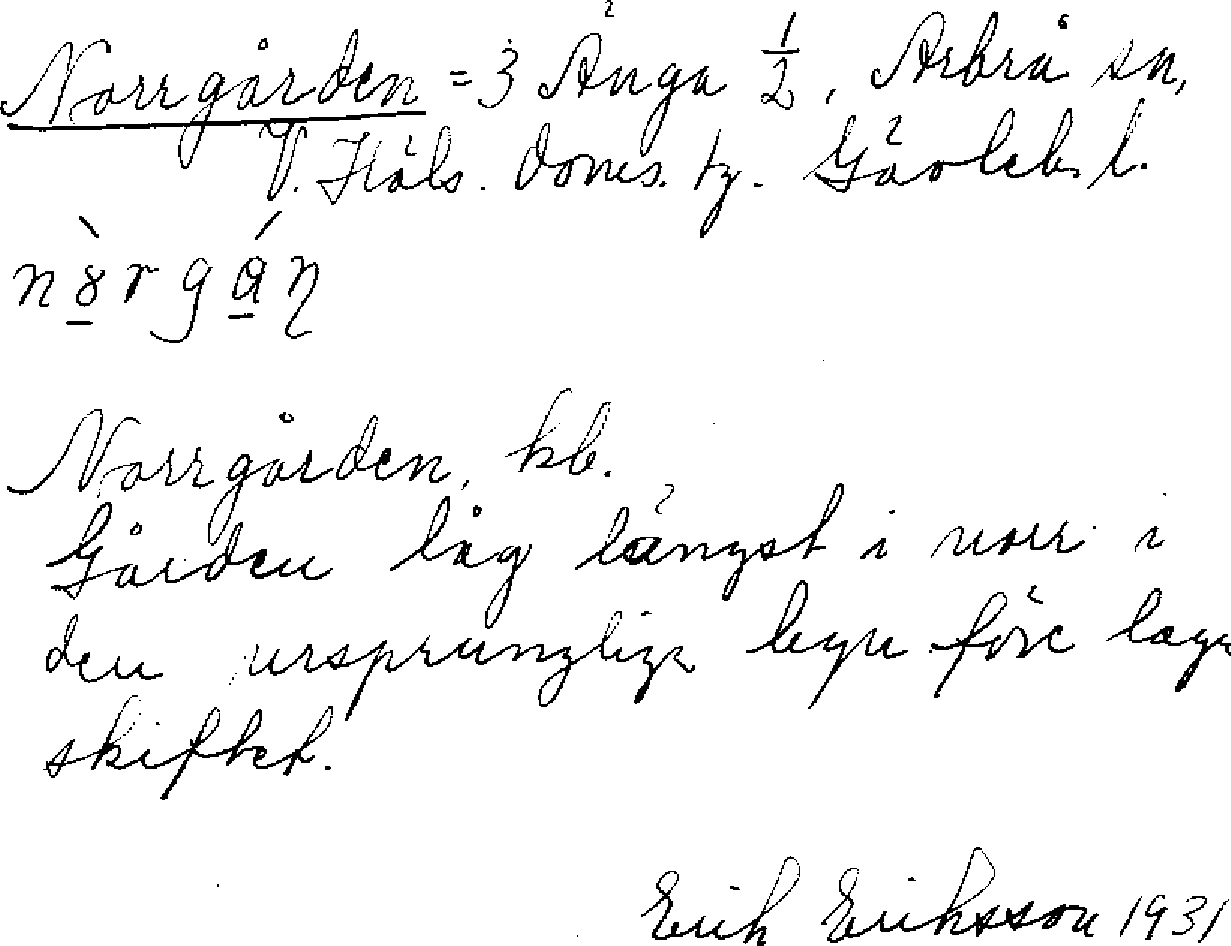 Norrgården = 3 Änga 1/2, Arbrå sn,
V. Häls. doms. tg. Gävleb. l.
nòrgάn̥
Norrgården, kb.
Gården låg längst i norr i
den ursprungliga byn före laga
skiftet.
Erik Eriksson 1931